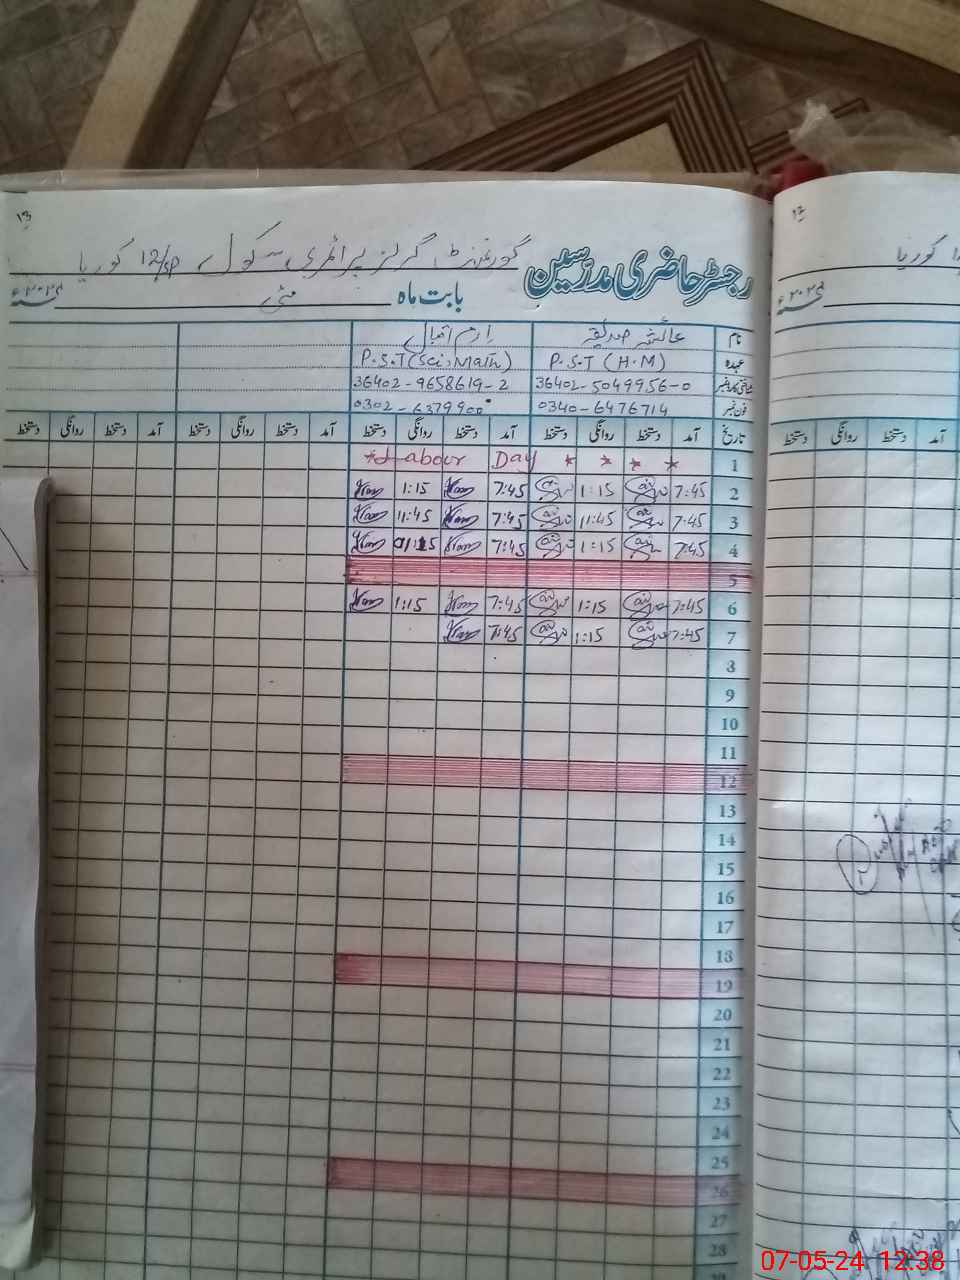 ۱۳
گورنمنٹ گرلز پرائمری سکول 12/SP کوریا
رجسٹر حاضری مدرسین
بابت ماہ مئی ۲۰۲۴ء
نام عائشہ صدیقہ ارم اقبال
عہدہ P.S.T (H.M) P.S.T (Sci, Math)
شناختی کارڈ نمبر 36402-5049956-0 36402-9658619-2
فون نمبر 0340-6476714 0302-6379900
تاریخ آمد دستخط روانگی دستخط آمد دستخط روانگی دستخط آمد دستخط روانگی دستخط آمد دستخط روانگی دستخط
1 * Labour Day * * * *
2 7:45 1:15 7:45 1:15
3 7:45 11:45 7:45 11:45
4 7:45 1:15 7:45 01:15
5
6 7:45 1:15 7:45 1:15
7 7:45 1:15 7:45
8
9
10
11
12
13
14
15
16
17
18
19
20
21
22
23
24
25
26
27
28
کوریا
۲۰۲۴ء
آمد دستخط روانگی دستخط
07-05-24 12:38